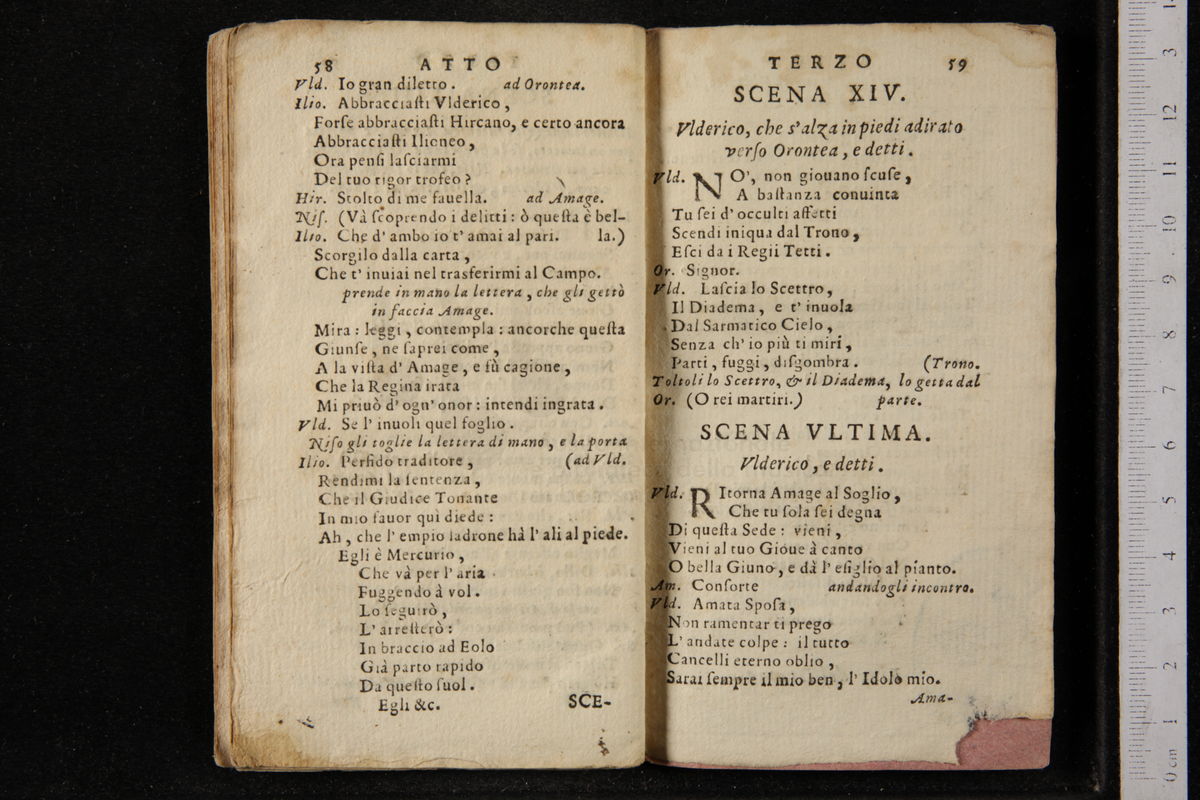 58 ATTO
Vld. Io gran diletto. ad Orontea.
Ilio. Abbracciaſti Vlderico,
Forſe abbracciaſti Hircano, e certo ancora
Abbracciaſti Ilioneo,
Ora penſi laſciarmi
Del tuo rigor trofeo?
Hir. Stolto di me fauella. ad Amage.
Niſ. (Và ſcoprendo i delitti: ò queſta è bel-
Ilio. Che d' ambo io t' amai al pari. la.)
Scorgilo dalla carta,
Che t' inuiai nel trasferirmi al Campo.
prende in mano la lettera, che gli gettò
in faccia Amage.
Mira: leggi, contempla: ancorche queſta
Giunſe, ne ſaprei come,
A la viſta d' Amage, e fù cagione,
Che la Regina irata
Mi priuò d' ogn' onor: intendi ingrata.
Vld. Se l' inuoli quel foglio.
Niſo gli toglie la lettera di mano, e la porta
Ilio. Perfido traditore, (ad Vld.
Rendimi la ſentenza,
Che il Giudice Tonante
In mio fauor quì diede:
Ah, che l' empio ladrone hà l' ali al piede.
Egli è Mercurio,
Che và per l' aria
Fuggendo à vol.
Lo ſeguirò,
L' arreſterò:
In braccio ad Eolo
Già parto rapido
Da queſto ſuol.
Egli &c. SCE-
TERZO 59
SCENA XIV.
Vlderico, che s' alza in piedi adirato
verſo Orontea, e detti.
Vld. NO', non giouano ſcuſe,
A baſtanza conuinta
Tu ſei d' occulti affetti
Scendi iniqua dal Trono,
Eſci da i Regii Tetti.
Or. Signor.
Vld. Laſcia lo Scettro,
Il Diadema, e t' inuola
Dal Sarmatico Cielo,
Senza ch' io più ti miri,
Parti, fuggi, diſgombra. (Trono.
Toltoli lo Scettro, & il Diadema, lo getta dal
Or. (O rei martiri.) parte.
SCENA VLTIMA.
Vlderico, e detti.
Vld. RItorna Amage al Soglio,
Che tu ſola ſei degna
Di queſta Sede: vieni,
Vieni al tuo Gioue à canto
O bella Giuno, e dà l' eſiglio al pianto.
Am. Conſorte andandogli incontro.
Vld. Amata Spoſa,
Non ramentar ti prego
L' andate colpe: il tutto
Cancelli eterno oblio,
Sarai ſempre il mio ben, l' Idolo mio.
Ama-
0 cm 1 2 3 4 5 6 7 8 9 10 11 12 13